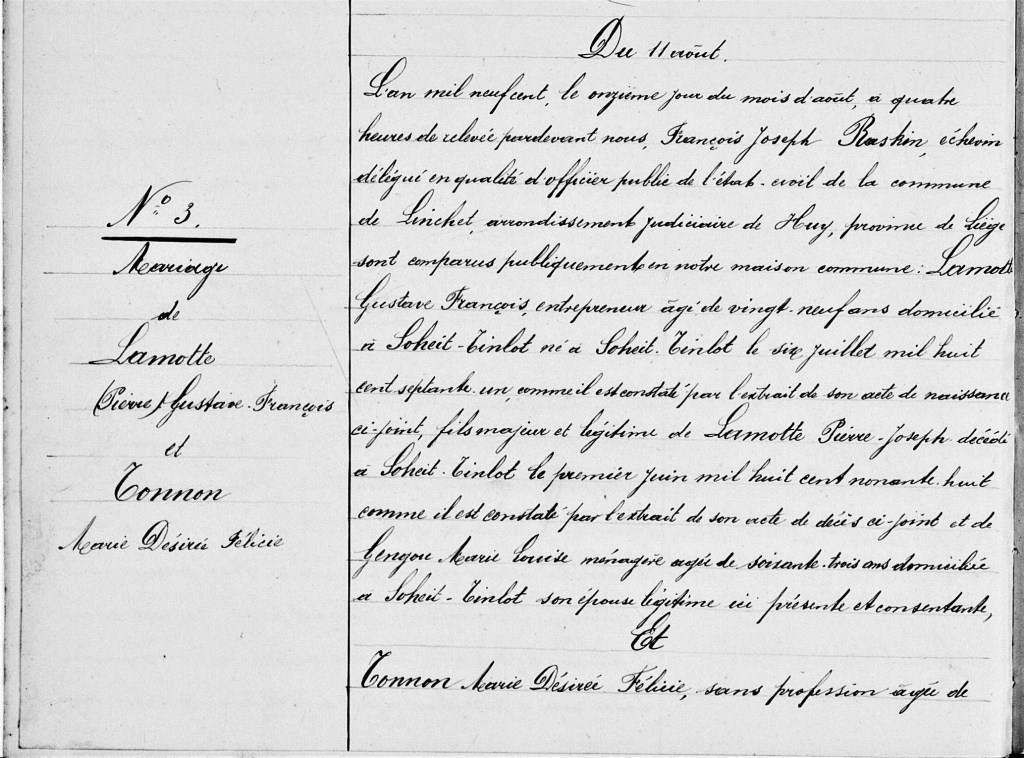 Du 11 août.
L'an mil neuf cent, le onzième jour du mois d'août, à quatre
heures de relevée pardevant nous, François Joseph Raskin, échevin
délégué en qualité d'officier public de l'état-civil de la commune
de Linchet, arrondissement judiciaire de Huy, province de Liège
sont comparus publiquement en notre maison commune: Lamotte
Gustave François, entrepreneur âgé de vingt-neuf ans domicilié
à Soheit-Tinlot né à Soheit-Tinlot le six juillet mil huit
cent septante-un, comme il est constaté par l'extrait de son acte de naissance
ci-joint, fils majeur et légitime de Lamotte Pierre-Joseph décédé
à Soheit-Tinlot le premier juin mil huit cent nonante-huit
comme il est constaté par l'extrait de son acte de décès ci-joint et de
Gengou Marie Louise ménagère agée de soixante-trois ans domiciliée
à Soheit-Tinlot son épouse légitime ici présente et consentante,
Et
Tonnon Marie Désirée Félicie, sans profession âgée de
N° 3.
Mariage
de
Lamotte
(Pierre) Gustave-François
et
Tonnon
Marie Désirée Félicie